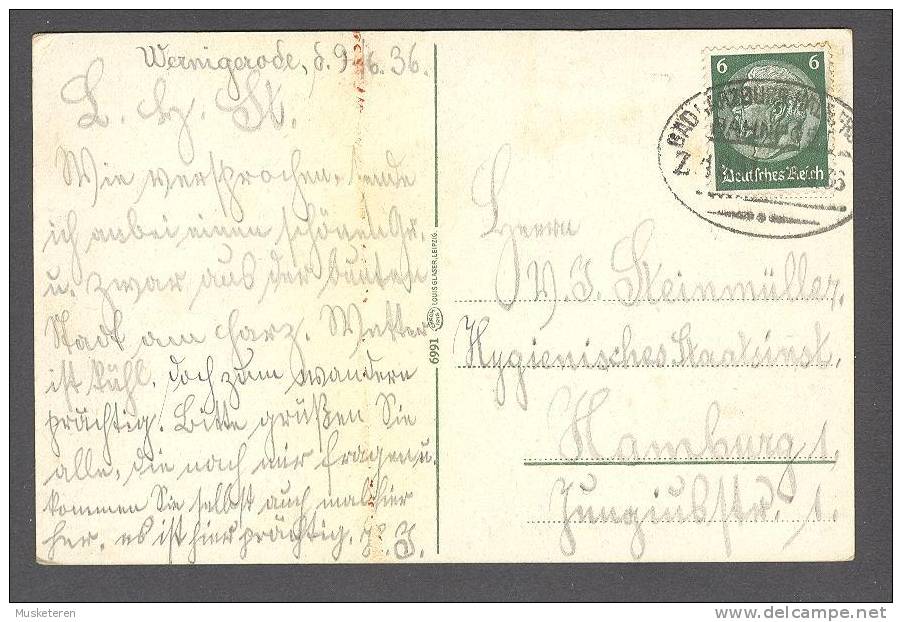 Wernigerode, d. 9.6.36.
L. Hz. St.
Wie versprochen, sende
ich anbei einen schönen Gr.
u. zwar aus der bunten
Stadt am Harz. Wetter
ist kühl, doch zum wandern
prächtig. Bitte grüßen Sie
alle, die nach mir fragen u.
kommen Sie selbst auch mal hier
her, es ist hier prächtig. J.
6991
LOUIS GLASER, LEIPZIG
6 6
Deutsches Reich
BAD HARZBURG
BAHNPOST
Herrn
J. Steinmüller,
Hygienisches Staatsinst.
Hamburg 1,
Jungiusstr. 1.
Musketeren
www.delcampe.net